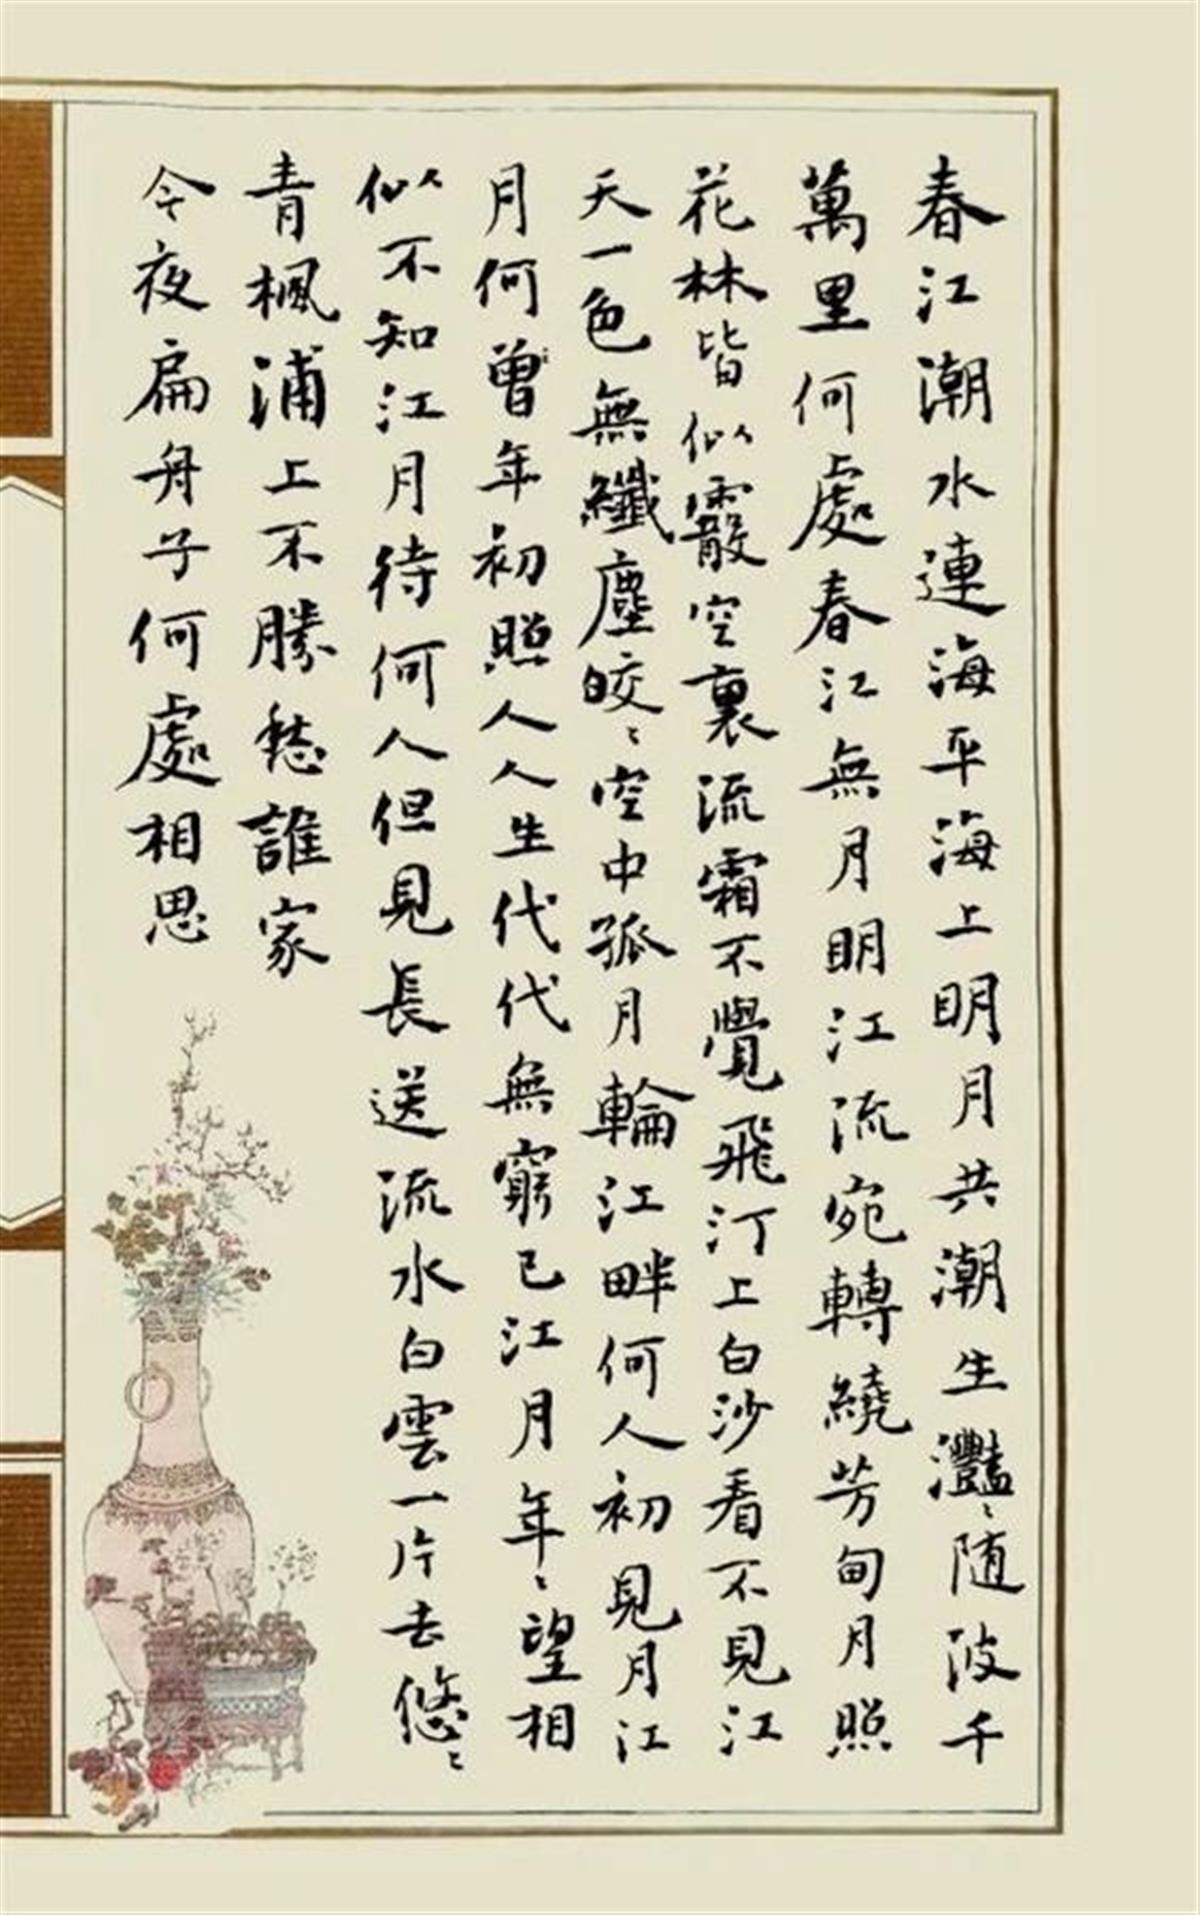 春江潮水連海平海上明月共潮生灩〻随波千
萬里何處春江無月明江流宛轉繞芳甸月照
花林皆似霰空裏流霜不覺飛汀上白沙看不見江
天一色無纖塵皎〻空中孤月輪江畔何人初見月江
月何曾年初照人人生代代無窮已江月年〻望相
似不知江月待何人但見長送流水白雲一片去悠〻
青楓浦上不勝愁誰家
今夜扁舟子何處相思